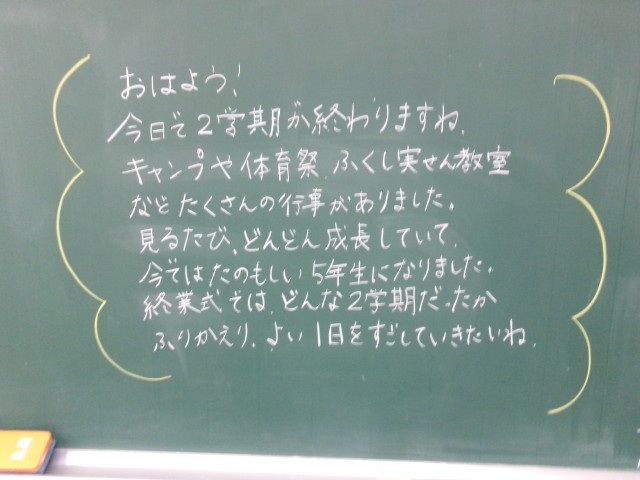 おはよう!
今日で2学期が終わりますね.
キャンプや体育祭.ふくし実せん教室
などたくさんの行事がありました。
見るたび、どんどん成長していて.
今ではたのもしい5年生になりました.
終業式では、どんな2学期だったか
ふりかえり、よい1日をすごしていきたいね.